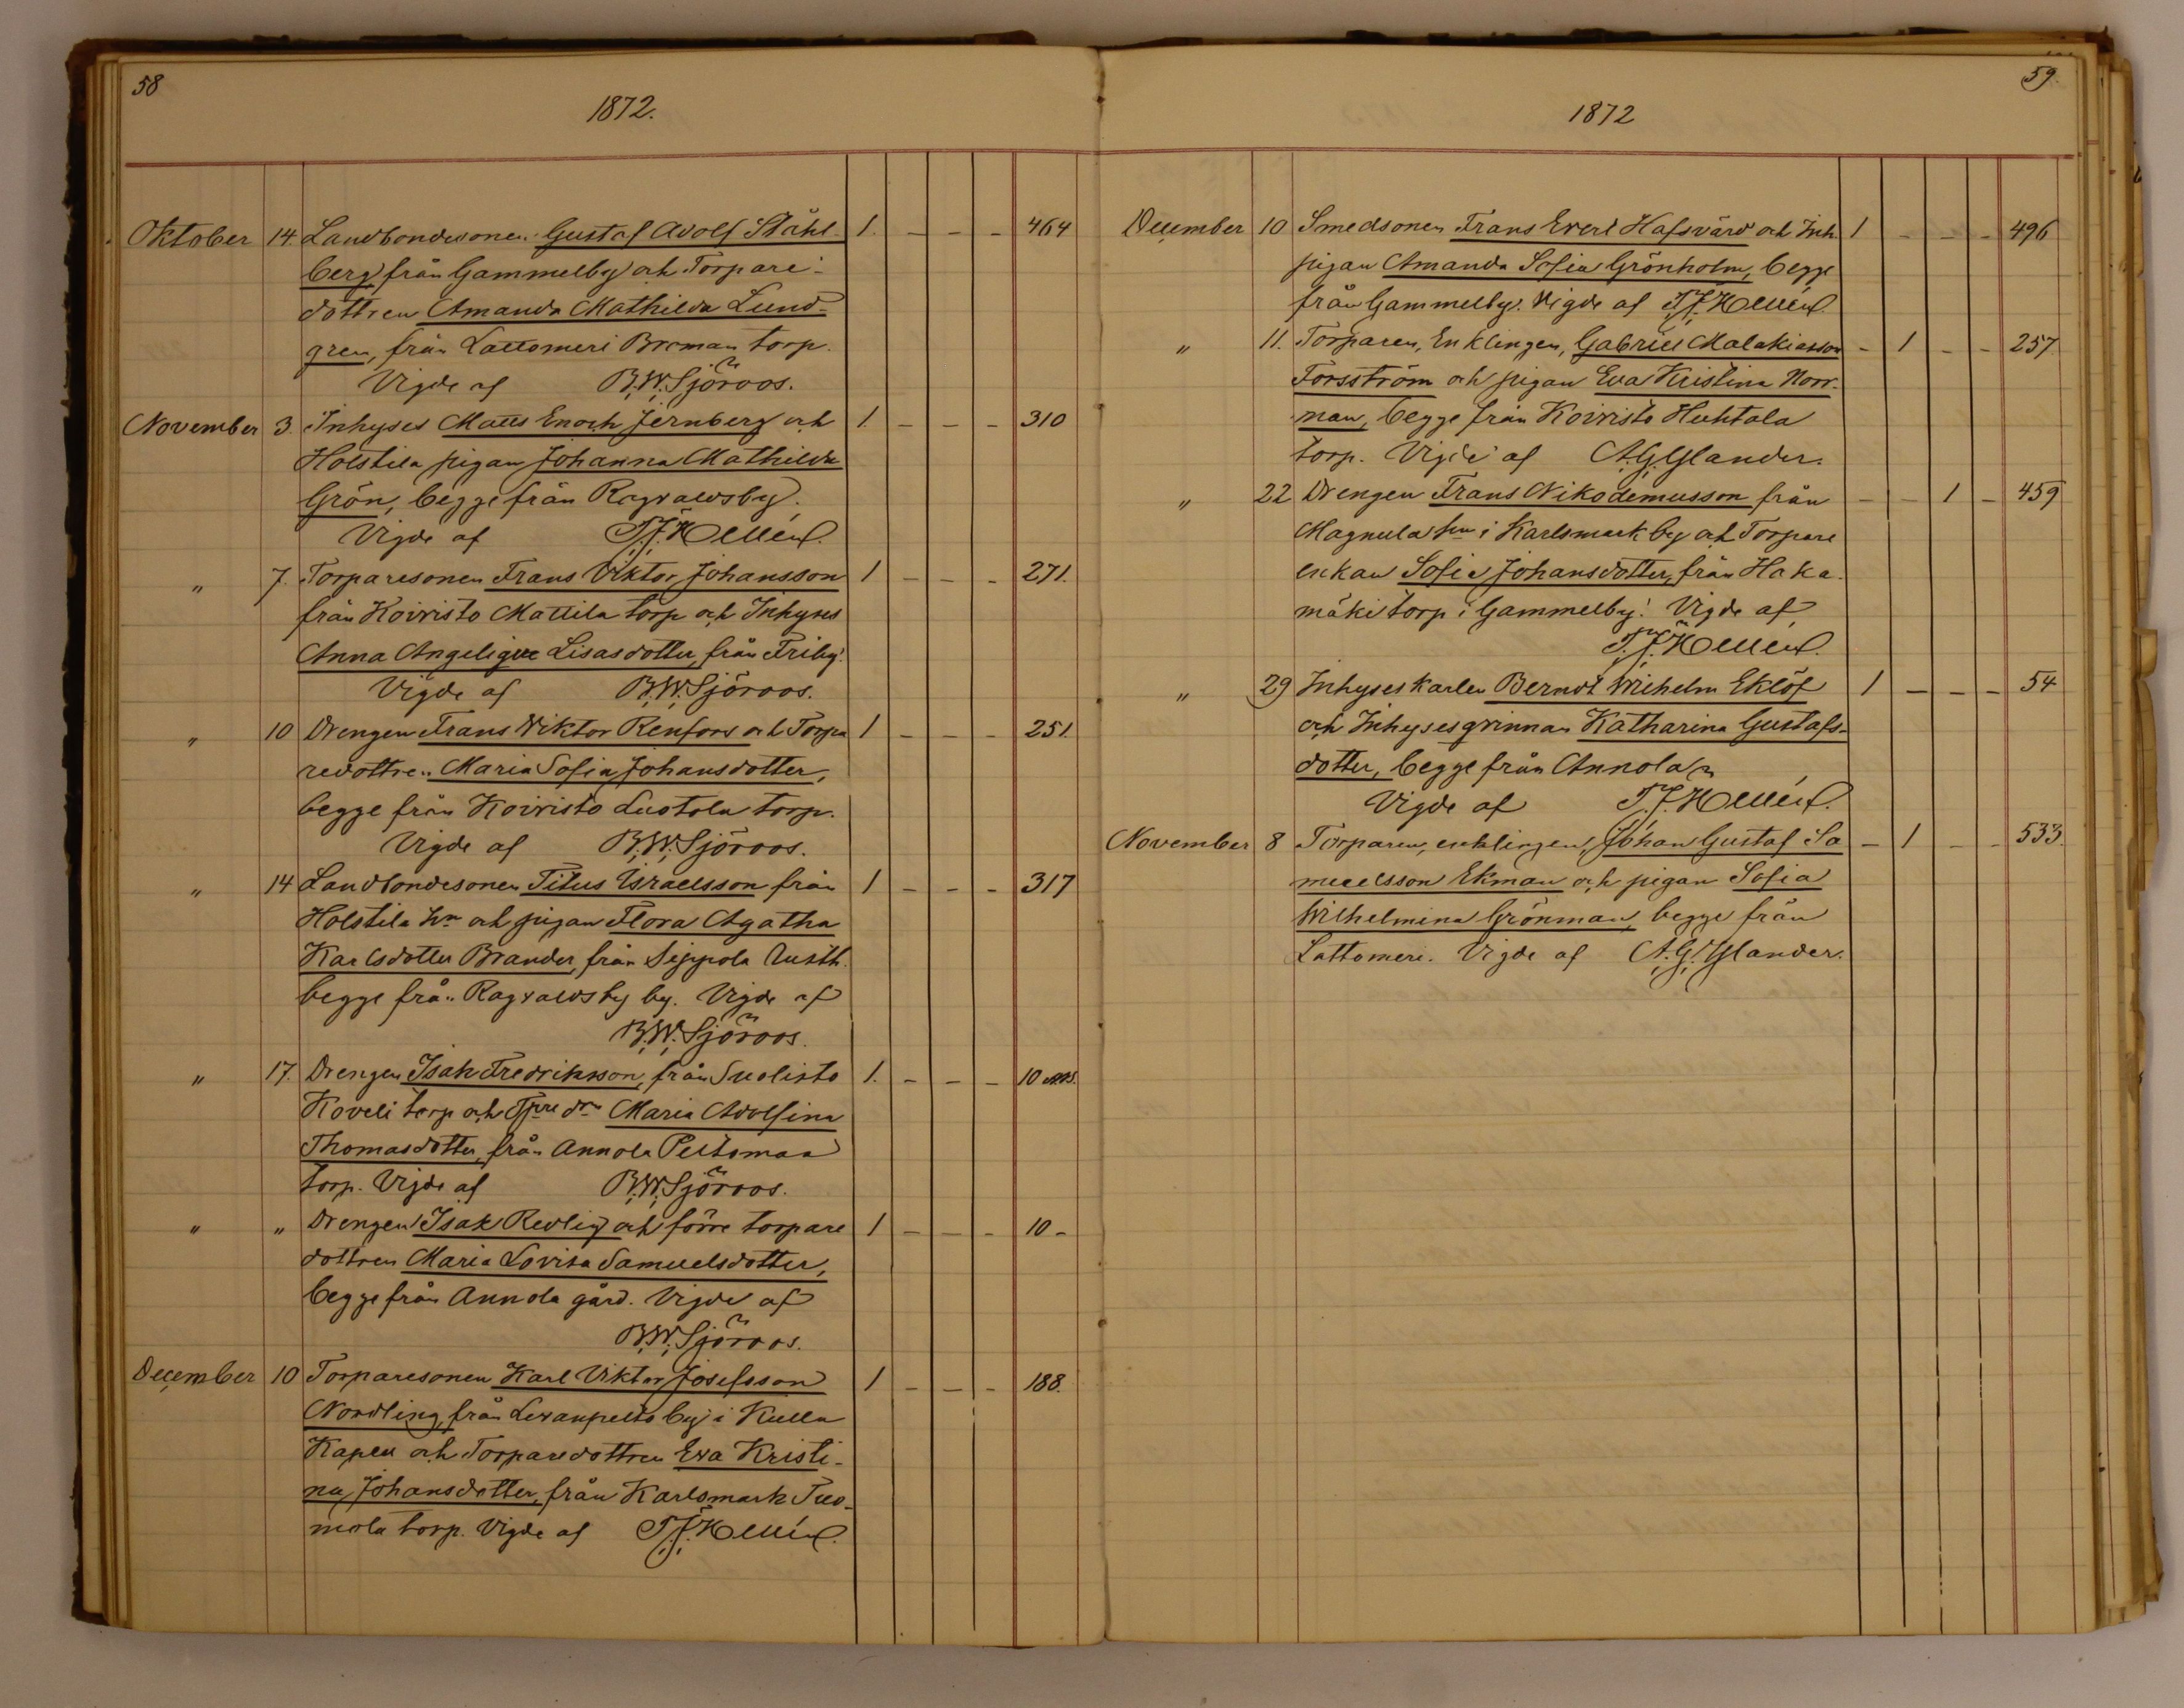 58
1872.
Oktober 14 Landbondesonen Gustaf Adolf Ståhl- 1. - - - 464
berg, från Gammelby och Torpare-
dottren Amanda Mathilda Lund-
gren, från Lattomeri Broman torp.
Vigde af B.W.Sjöroos.
November 3. Inhyses Matts Enoch Jernberg och 1. - - - 310
Holstila pigan Johanna Mathilda
Grön, begge från Ragvaldsby.
Vigde af T.J.Hellén.
" 7. Torparesonen Frans Viktor Johansson 1 - - - 271.
från Koivisto Mattila torp och Inhyses
Anna Angelique Lisasdotter, från Friby.
Vigde af B.W.Sjöroos.
" 10 Drengen Frans Viktor Renfors och Torpa 1 - - - 251.
redottren Maria Sofia Johansdotter,
begge från Koivisto Luotola torp.
Vigde af B.W.Sjöroos.
" 14 Landbondesonen Titus Israelsson från 1 - - - 317
Holstila hn och pigan Flora Agatha
Karlsdotter Brander, från Sippola Rusth.
begge från Ragvaldsby by. Vigde af
B.W.Sjöroos.
" 17. Drengen Isak Fredriksson, från Suolisto 1. - - - 10
Koveli torp och Tpre dr Maria Adolfina
Thomasdotter, från Annola Peltomaa
torp. Vigde af B.W.Sjöroos.
" " Drengen Isak Redlig och förre torpare 1 - - - 10 -
dottren Maria Lovisa Samuelsdotter,
begge från Annola gård. Vigde af
B.W.Sjöroos.
December 10 Torparesonen Karl Viktor Josefsson 1 - - - 188.
Nordling, från Levanpelto by i Kulla
Kapell och Torparedottren Eva Kristi-
na Johansdotter, från Karlsmark Tuo-
mola torp. Vigde af T.J.Hellén.
59.
1872
December 10 Smedsonen Frans Evert Hafsvärd och Inh. 1 - - - 496
pigan Amanda Sofia Grönholm, begge
från Gammelby. Vigde af T.J.Hellén.
" 11. Torparen, Enklingen, Gabriel Malakiasson - 1 - - 257
Forsström och pigan Eva Kristina Norr-
man, begge från Koivisto Huhtala
torp. Vigde af A.G.Ylander.
" 22 Drengen Frans Nikodemusson från - - 1 - 459
Magnula hn i Karlsmark by och Torpare
enkan Sofia Johansdotter, från Haka-
mäki torp i Gammelby. Vigde af
T.J.Hellén.
" 29 Inhyseskarlen Berndt Wilhelm Eklöf 1 - - - 54
och Inhysesqvinnan Katharina Gustafs-
dotter, begge från Annola
Vigde af T.J.Hellén.
November 8 Torparen, enklingen, Johan Gustaf Sa - 1 - - 533.
muelsson Ekman och pigan Sofia
Wilhelmina Grönman, begge från
Lattomeri. Vigde af A.G.Ylander.